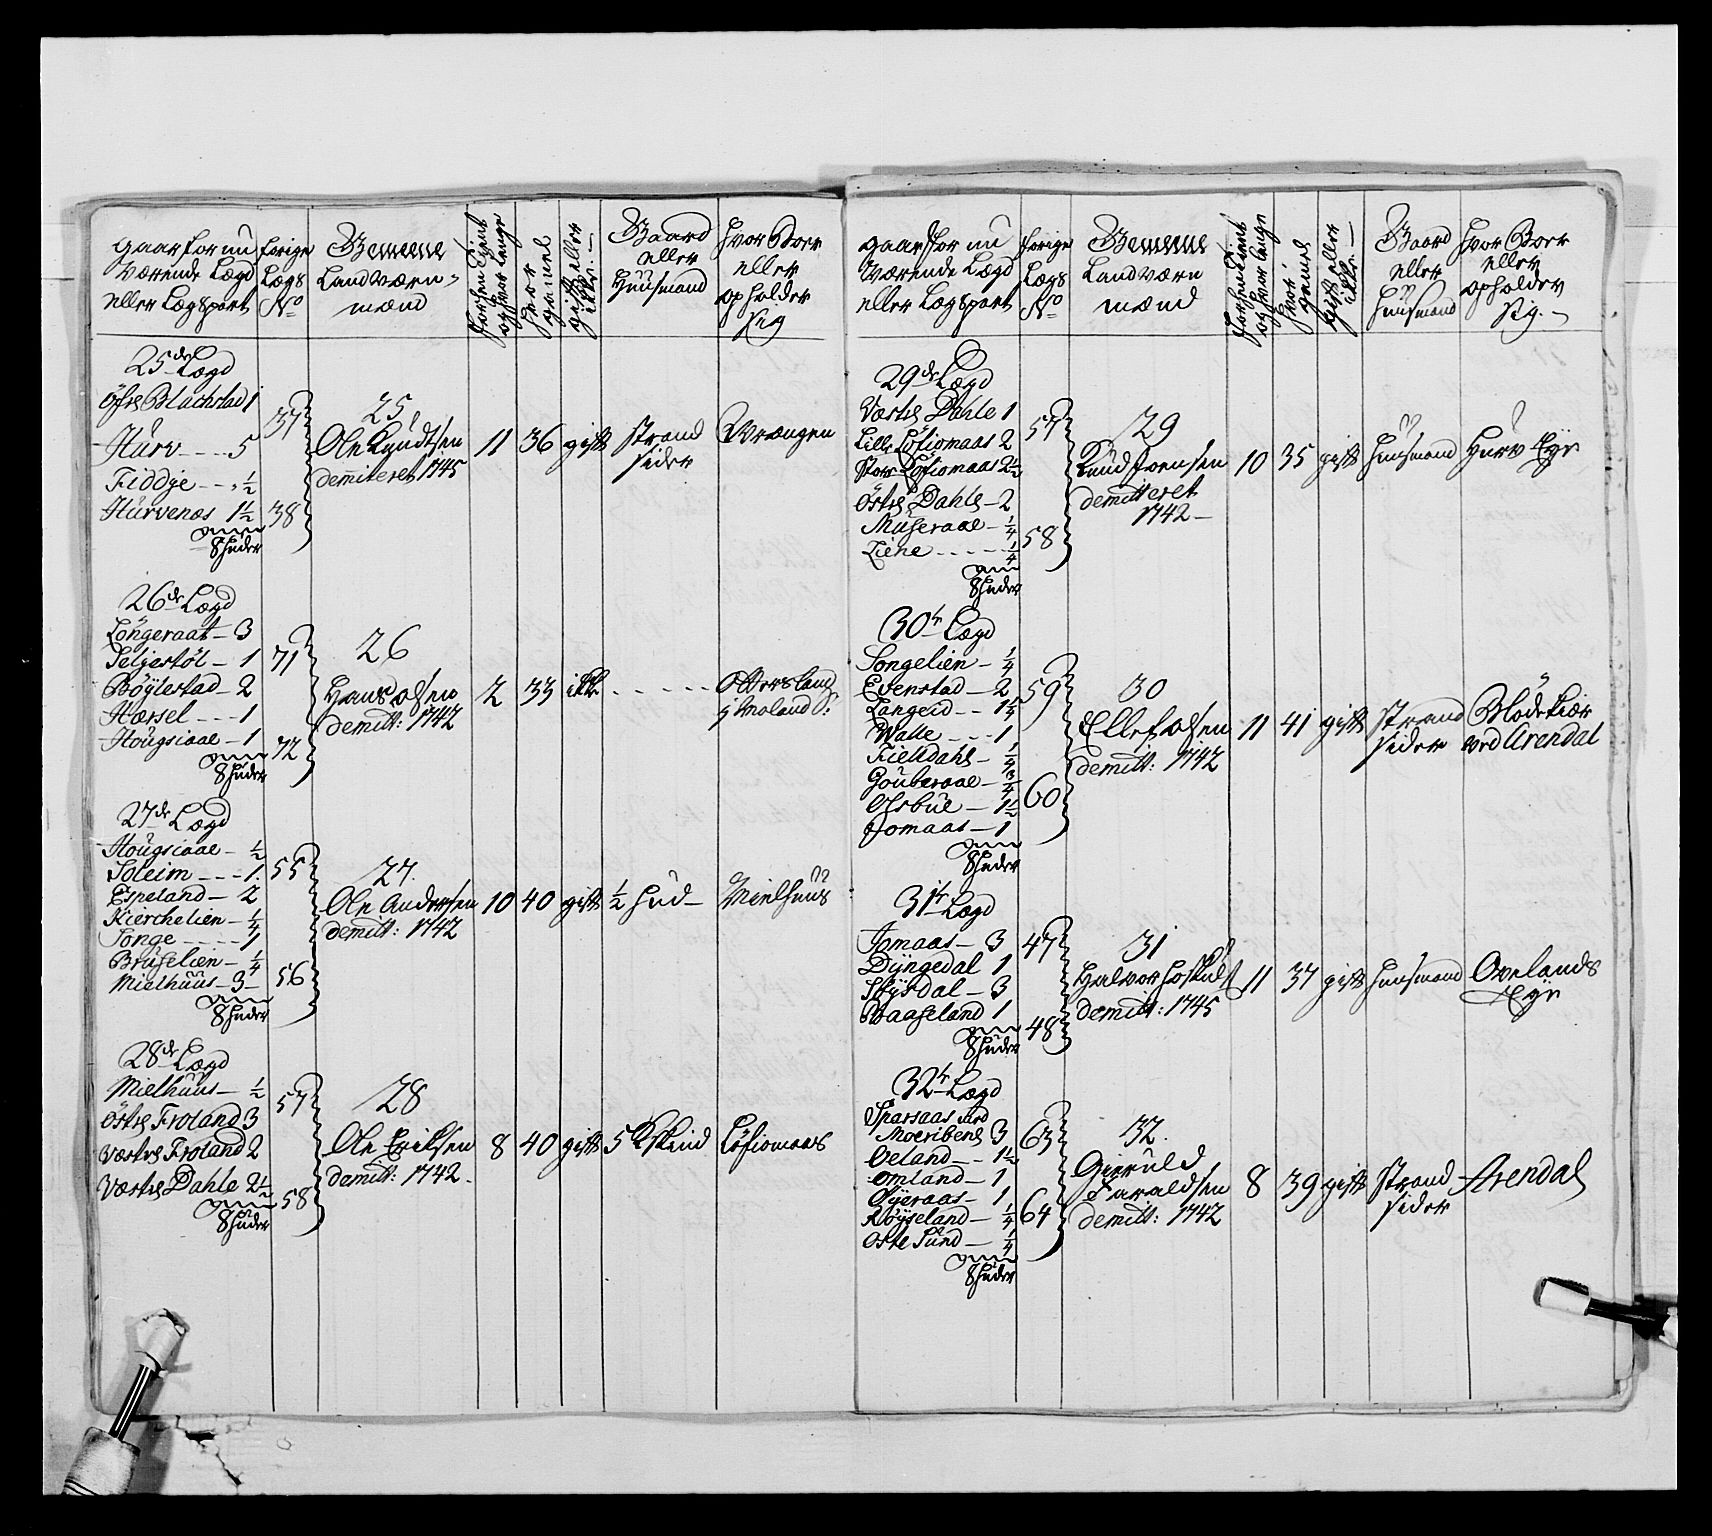 gaar for nu
Værende Lægd
eller Lægspart
forige
Lægs
No
Gemene
Landværn-
mænd
og hvor længe
hvor
gamel
gift eller
ikke
Gaard
eller
Huusmand
hvor Boer
eller
opholder
sig
25de Lægd
Öfre Blachstad 1
Hurv - - - - 5
Fiddje - - - ½
Hurvenes 1½
8 huder
37
38
25
Ole Knudtsen
demiteret 1745
11
36
gift
strand
sider
Wrængen
26de Lægd
Löngeraat - 3
Seljestöl - 1
Böylestad - 2
Hærsel - - - 1
Hougsiaae - 1
8 huder
71
72
26
Hans Olsen
demitt: 1742
2
33
ikke
- - - - -
Ottersland
j Moland
27de Lægd
Hougsiaae - ½
Soleim - - - 1
Espeland - 2
Kierchelien - ¼
Songe - - - - 1
Bruselien - ¼
Mielhuus - 3 -
8 huder
55
56
27.
Ole Andersen
demitt: 1742
10
40
gift
½ hud -
Mielhuus
28de Lægd
Mielhuus - ½
Östre Froland 3
Vestre Froland 2
Værtre Dahle 2½
8 huder
57
58
28
Ole Eriksen
demitt: 1742
8
40
gift
5 Kskind
Löfiomaas
gaar for nu
Værende Lægd
eller Lægspart
forige
Lægs
No
Gemene
Landværn
mænd
og hvor længe
hvor
gamel
gift eller
ikke
Gaard
eller
huusmand
hvor Boer
eller
opholder
sig. -
29de Lægd
Værtre Dahle 1
Lille Löfiomaas 2
Store Löfiomaas 2½
Östre Dahle - 2
Museraae - ¼
Liene - - - - - ¼
8 huder
57
58
29
Knud Jrensen
demitteret
1742 -
10
35
gift
huusmand
Hurv Eye
30te Lægd
Songelien - ¼
Evenstad - 2
Langeid - - 1¼
Walle - - - 1
Fieldahl - ¼
Gouberaae - ¾
Olsbue - 1½
Jomaas - 1
8 huder
59
60
30
Ellef Olsen
demitt: 1742
11
41
gift
strand
sider
Blödekiær
ved Arendal
31te Lægd
Jomaas - 3
Dyngedal 1
Skysdal - 3
Baaseland 1
8 huder
47
48
31
Halvor
demitt: 1745
11
37
gift
huusmand
Ovelands
Eye
32te Lægd
Sparsaas med
Moeribene 3
Oeland - - 1½
Omland - 1
Öyeraas - 1
Röyseland - ¼
Oste Sund - ¼
8 huder
63
64
32.
Gieruld
Taraldsen
demitt: 1742
8
39
gift
strand
sider
Arendal